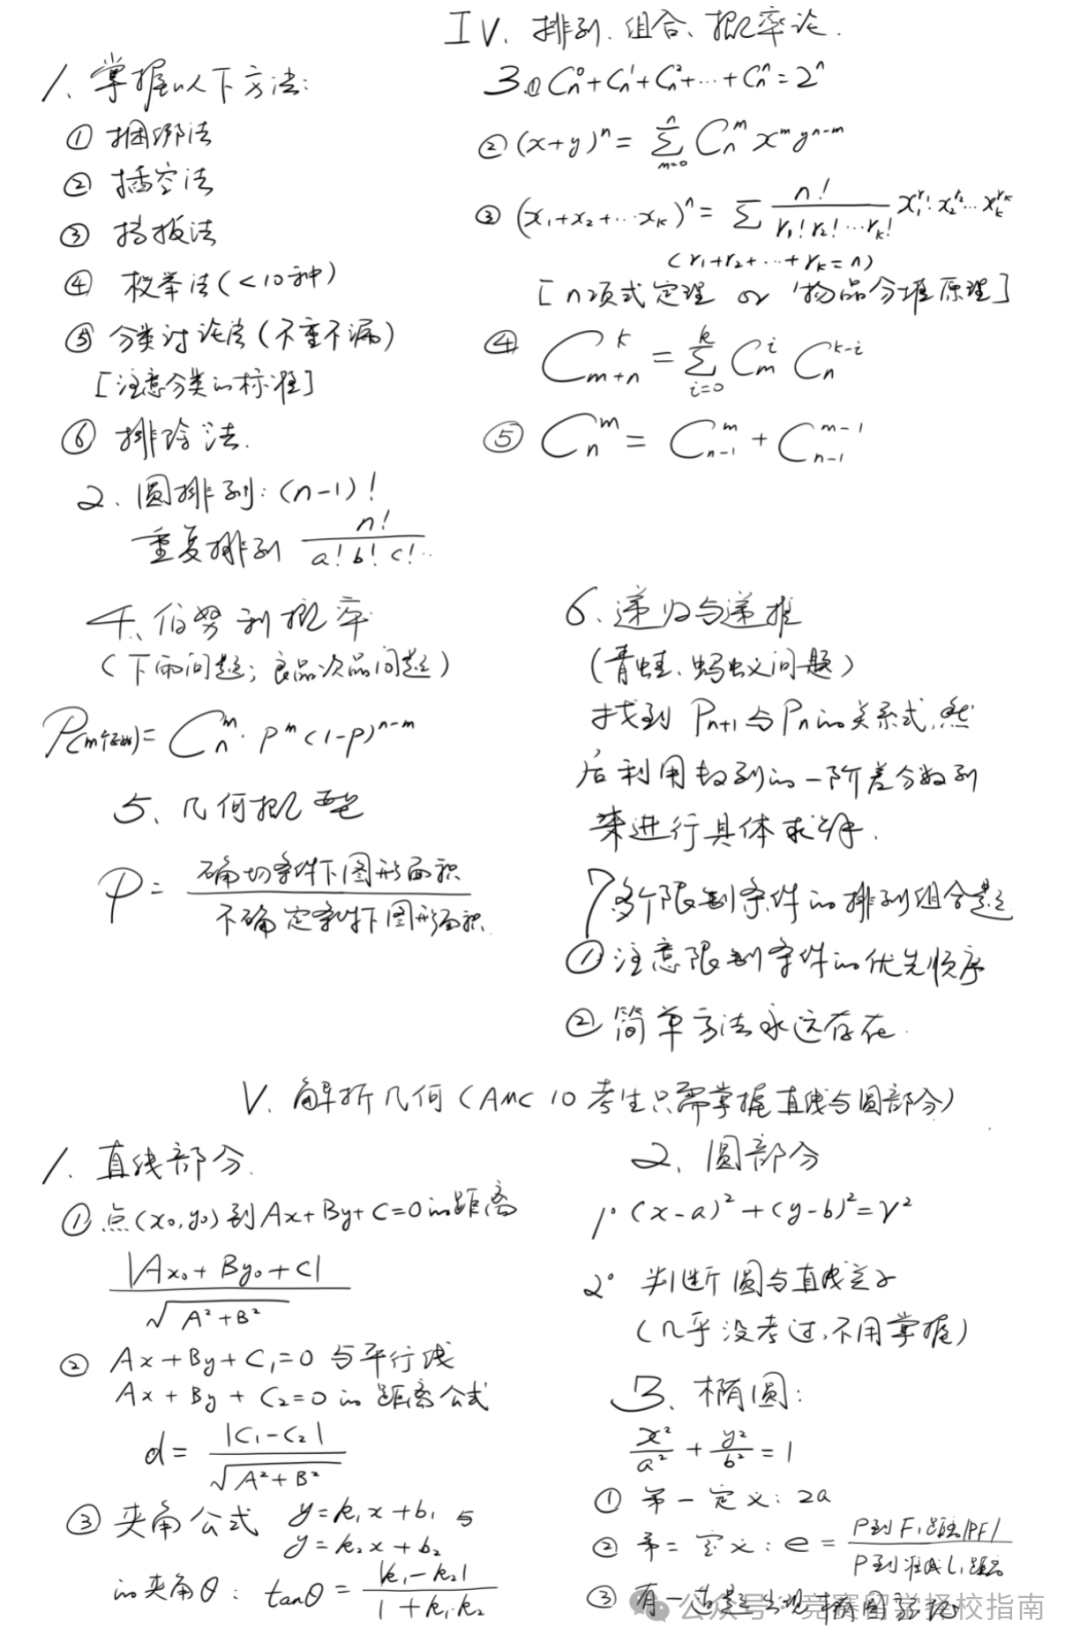 IV. 排列.组合、概率论.
1. 掌握以下方法:
① 捆绑法
② 插空法
③ 挡板法
④ 枚举法(<10种)
⑤ 分类讨论法(不重不漏)
[注意分类的标准]
⑥ 排除法.
2. 圆排列: (n-1)!
重复排列 n! / a! b! c!…
3.① C_n^0 + C_n^1 + C_n^2 + … + C_n^n = 2^n
② (x+y)^n = ∑_{m=0}^{n} C_n^m x^m y^{n-m}
③ (x₁+x₂+…x_k)^n = ∑ n! / r₁! r₂! …r_k! x₁^{r₁} · x₂^{r₂} … x_k^{r_k}
(r₁+r₂+…+r_k=n)
[n项式定理 or 物品分堆原理]
④ C_{m+n}^k = ∑_{i=0}^{k} C_m^i C_n^{k-i}
⑤ C_n^m = C_{n-1}^m + C_{n-1}^{m-1}
4、伯努利概率
(下雨问题; 良品次品问题)
= C_n^m · p^m (1-p)^{n-m}
5、几何概型
P = 确切条件下图形面积 / 不确定条件下图形面积
6、递归与递推
(青蛙、蚂蚁问题)
找到 P_{n+1} 与 P_n 的关系式,然
后利用数列的一阶差分数列
来进行具体求解.
7 多个限制条件的排列组合题
① 注意限制条件的优先顺序
② 简单方法永远存在.
V. 解析几何 (AMC 10 考生只需掌握直线与圆部分)
1. 直线部分.
① 点(x₀,y₀)到Ax+By+C=0的距离
|Ax₀+By₀+C| / √A²+B²
② Ax+By+C₁=0 与平行线
Ax+By+C₂=0 的距离公式
d = |C₁-C₂| / √A²+B²
③ 夹角公式 y=k₁x+b₁ 与
y=k₂x+b₂
的夹角θ: tanθ = |k₁-k₂| / 1+k₁·k₂
2、圆部分
1° (x-a)²+(y-b)²=r²
2° 判断圆与直线
(几乎没考过,不用掌握)
3、椭圆:
x²/a² + y²/b² = 1
① 第一定义: 2a
② 第二定义: e = P到F₁距离|PF| / P到准线L₁距离
③ 有一道题出现椭圆
公众号 · 竞赛留学择校指南